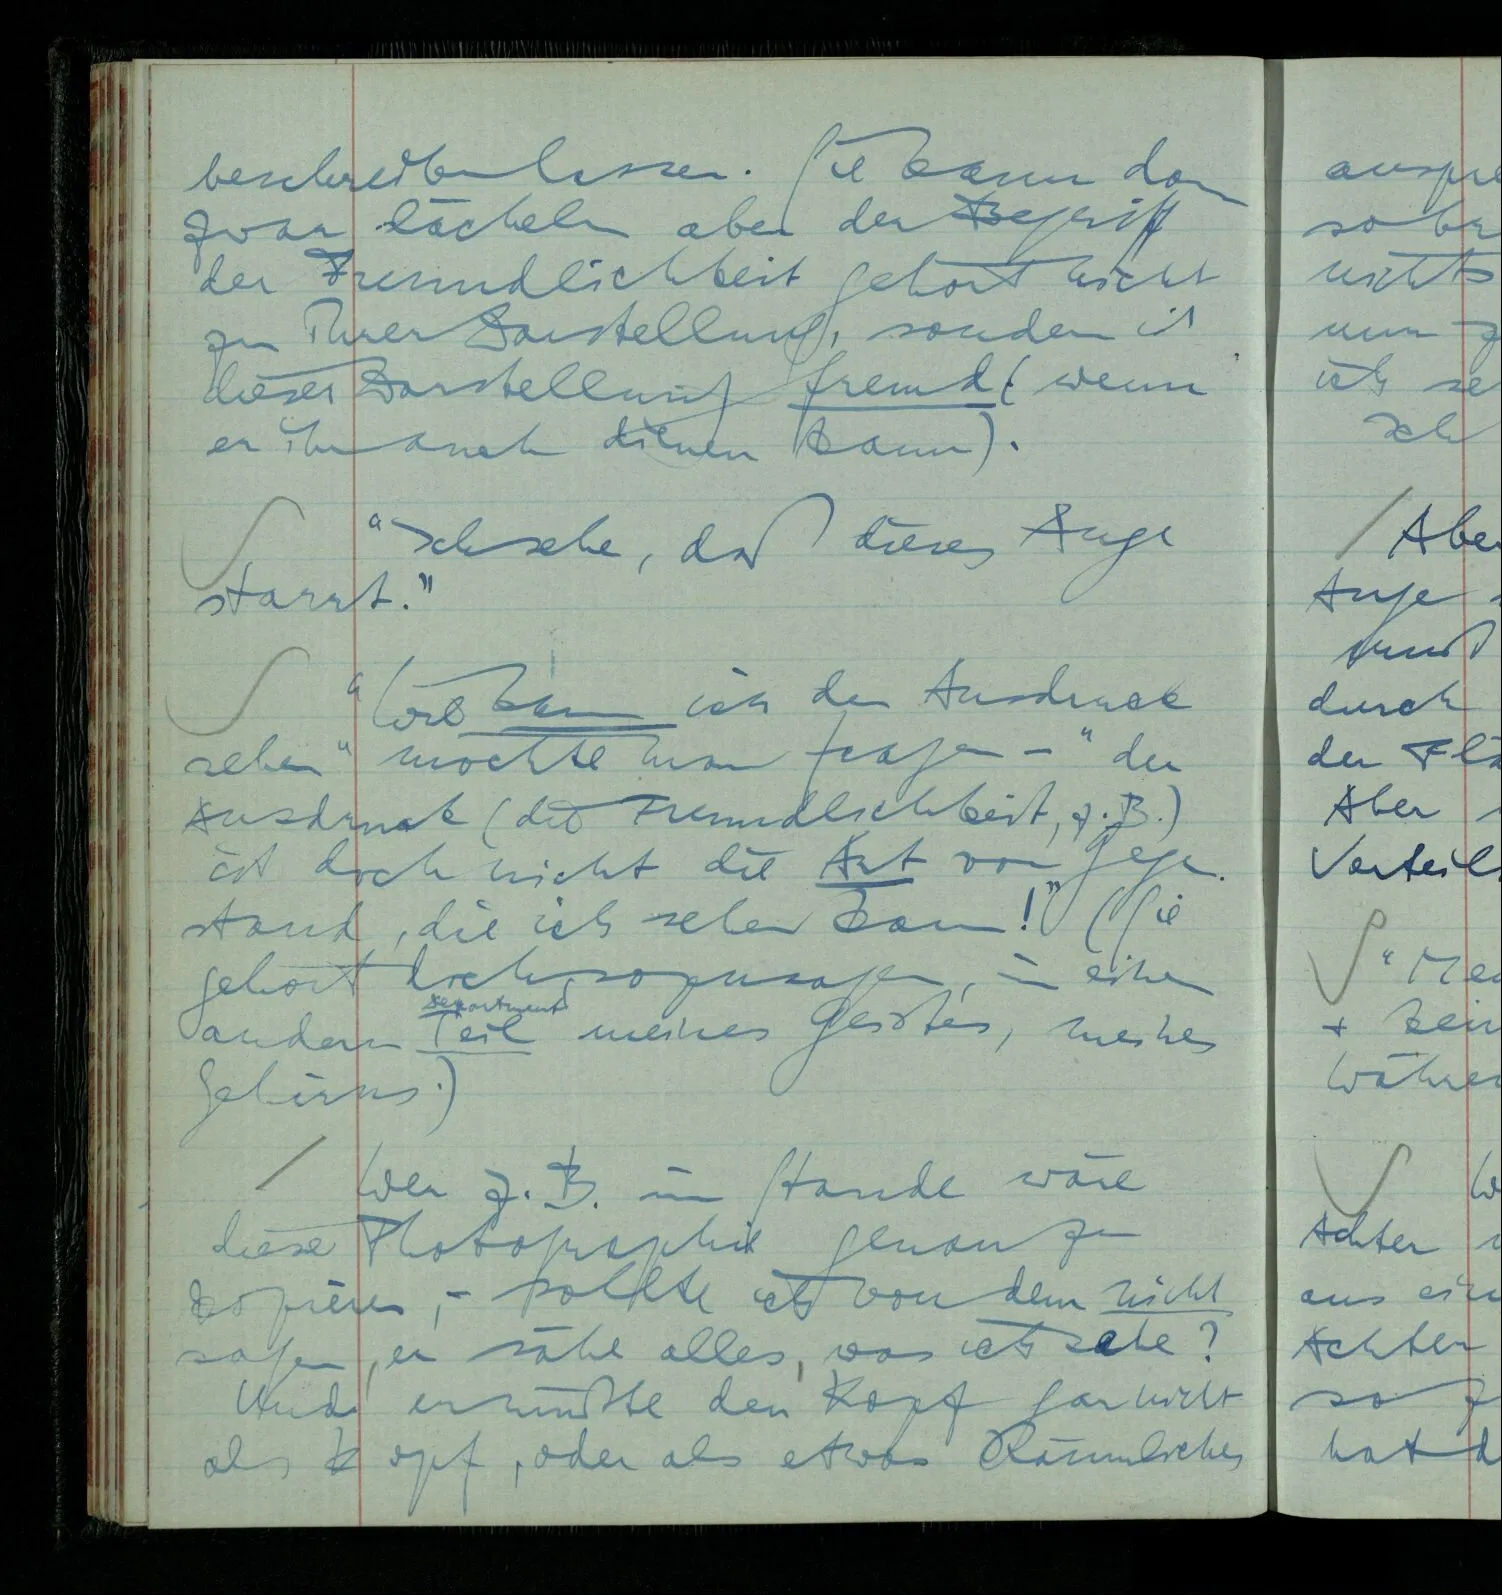 beschreiben lassen. Sie kann dann
zwar lächeln aber der Begriff
der Freundlichkeit gehört nicht
zu ihrer Darstellung, sondern ist
dieser Darstellung fremd (wenn
er ihr auch dienen kann).
"Ich sehe, daß dieses Auge
starrt."
"Wie kann ich den Ausdruck
sehen" möchte man fragen – "der
Ausdruck (die Freundlichkeit, z.B.)
ist doch nicht die Art von Gegen-
stand, die ich sehen kann!" (Sie
gehört doch, sozusagen, in einen
department
andern Teil meines Geistes, meines
Gehirns.)
Wer z.B. im Stande wäre
diese Photographie genau zu
kopieren, – sollte ich von dem nicht
sagen, er sähe alles, was ich sehe?
Und er müßte den Kopf gar nicht
als Kopf, oder als etwas Räumliches
nichts
Aber
Auge
durch
der
Aber
Achter
Achter
so